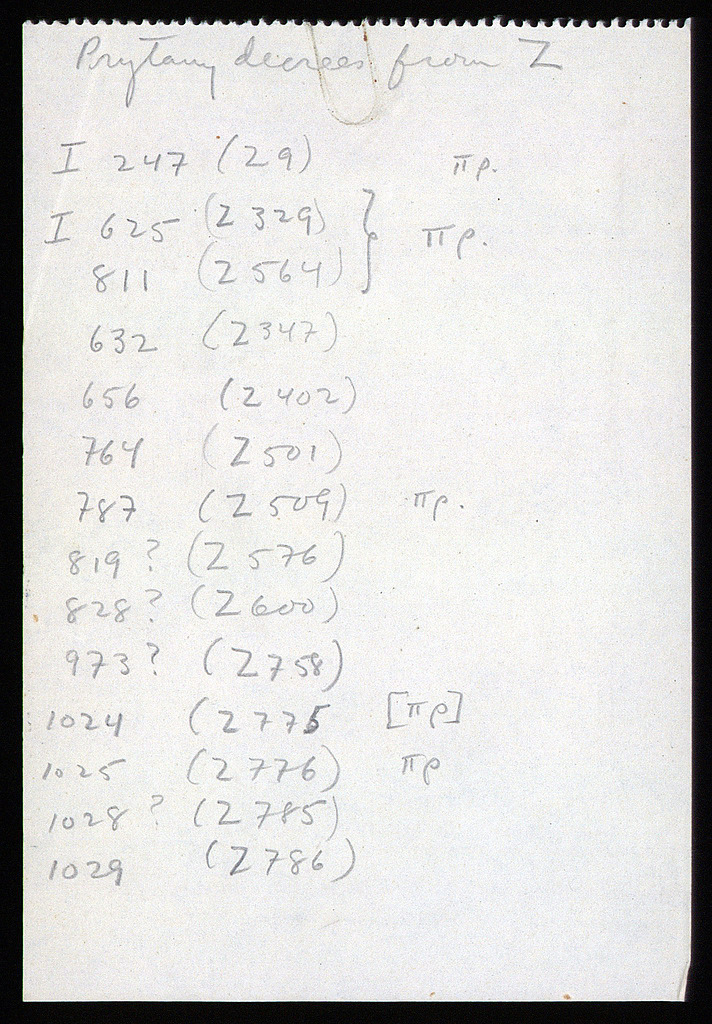 Prytany decrees from Z
I 247 (29) πρ.
I 625 (Z 329) } πρ.
811 (Z 564)
632 (Z 347)
656 (Z 402)
764 (Z 501)
787 (Z 509) πρ.
819? (Z 576)
828? (Z 600)
973? (Z 758)
1024 (Z 775 [πρ]
1025 (Z 776) πρ
1028? (Z 785)
1029 (Z 786)